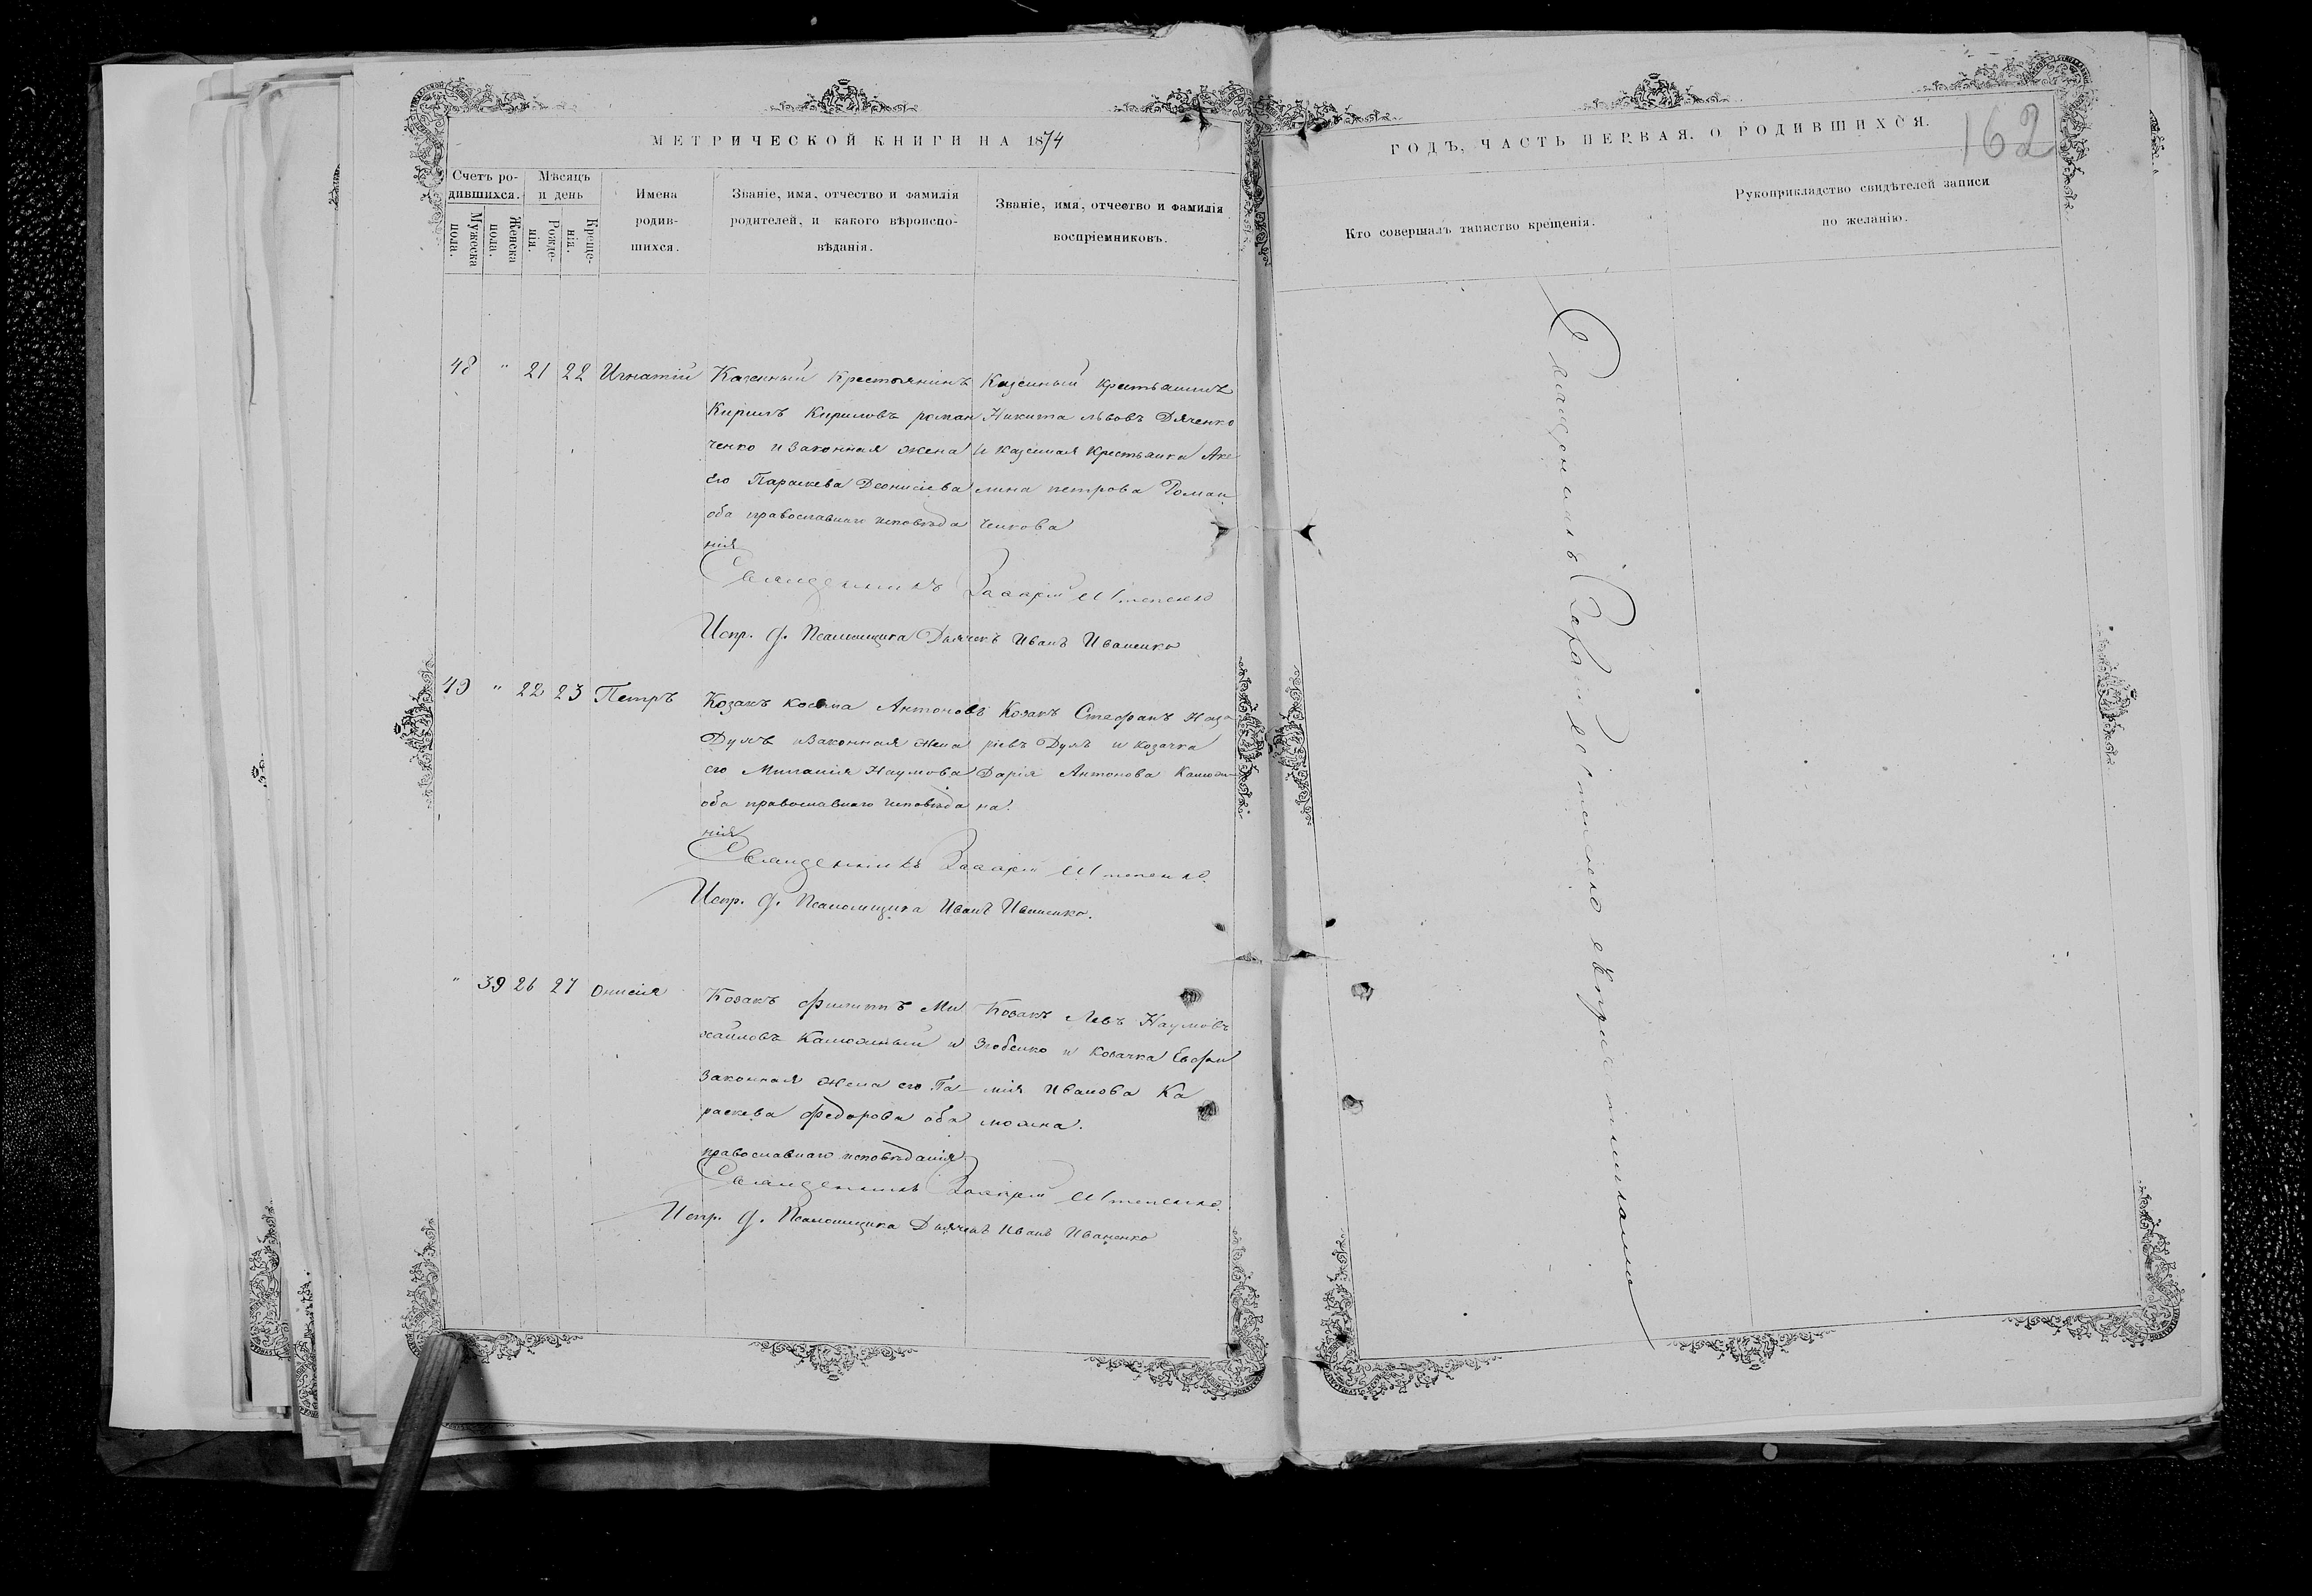 МЕТРИЧЕСКОЙ КНИГИ НА 1874
ГОДЪ, ЧАСТЬ ПЕРВАЯ, О РОДИВШИХСЯ.
162
Счетъ ро-
дившихся.
Мужеска
пола.
Женска
пола.
Мѣсяцъ
и день
Рожде-
нія.
Креще-
нія.
Имена
родив-
шихся.
Званіе, имя, отчество и фамилія
родителей, и какого вѣроиспо-
вѣданія.
Званіе, имя, отчество и фамилія
воспріемниковъ.
Кто совершалъ таинство крещенія.
Рукоприкладство свидѣтелей записи
по желанію.
48 " 21 22 Игнатій
Казенный крестьянинъ
Кирилъ Кириловъ Роман
ченко и законная жена
его Параскева Деонисіева
оба православнаго исповѣда
нія
Казенный крестьянинъ
Никита Львовъ Дяченко
и казенная крестьянка Аке
лина Петрова Роман
ченкова
Священникъ Захарій Имшенецкій
Испр. д. Псаломщика Дьячекъ Иванъ Иваненко
49 " 22 23 Петръ
Козакъ Косьма Антоновъ
Дулъ и законная жена
его Миланія Наумова
оба православнаго исповѣда
нія
Козакъ Стефанъ Наза
ріевъ Дулъ и козачка
Дарія Антонова Калюж-
на.
Священникъ Захарій
Испр. д. Псаломщика Иванъ Иваненко.
" 39 26 27 Онисія
Козакъ Филиппъ Ми
хайловъ Калюжный и
законная жена его Па-
раскева Федорова оба
православнаго исповѣданія
Козакъ Левъ Наумовъ
Зюбенко и козачка Евфи
мія Иванова Ка
люжна.
Священникъ Захарій
Испр. д. Псаломщика Дьячекъ Иванъ Иваненко
Священникъ Захарій съ причетниками